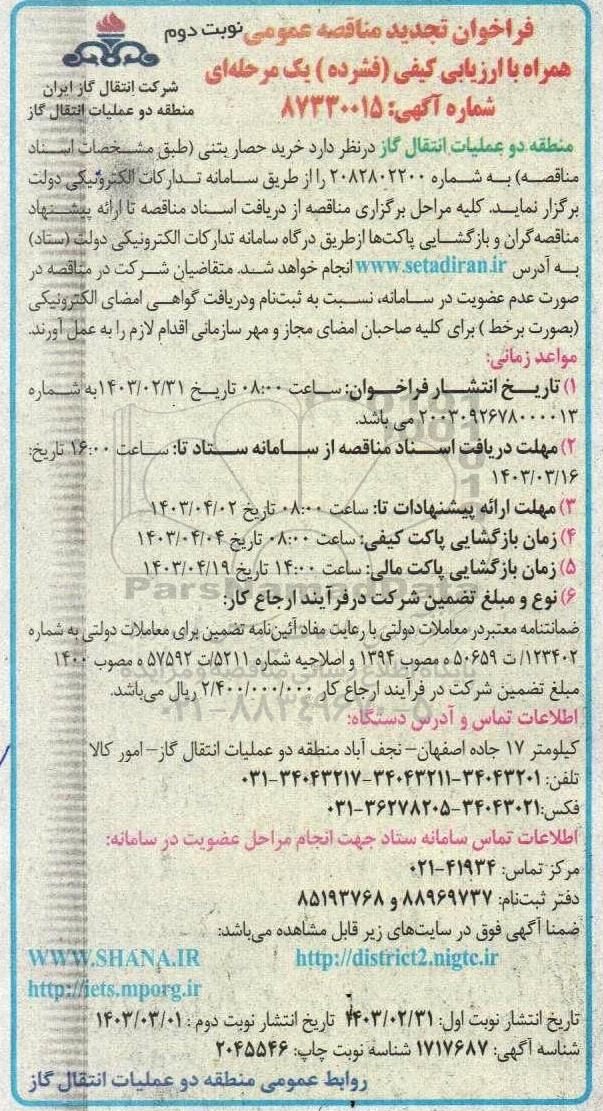 فراخوان تجدید مناقصه عمومی نوبت دوم
همراه با ارزیابی کیفی (فشرده) یک مرحله‌ای
شماره آگهی: ۸۷۳۳۰۰۱۵
شرکت انتقال گاز ایران
منطقه دو عملیات انتقال گاز
منطقه دو عملیات انتقال گاز درنظر دارد خرید حصار بتنی (طبق مشخصات اسناد
مناقصه) به شماره ۲۰۸۲۸۰۲۲۰۰ را از طریق سامانه تدارکات الکترونیکی دولت
برگزار نماید. کلیه مراحل برگزاری مناقصه از دریافت اسناد مناقصه تا ارائه پیشنهاد
مناقصه‌گران و بازگشایی پاکت‌ها ازطریق درگاه سامانه تدارکات الکترونیکی دولت (ستاد)
به آدرس www.setadiran.ir انجام خواهد شد. متقاضیان شرکت در مناقصه در
صورت عدم عضویت در سامانه، نسبت به ثبت‌نام ودریافت گواهی امضای الکترونیکی
(بصورت برخط) برای کلیه صاحبان امضای مجاز و مهر سازمانی اقدام لازم را به عمل آورند.
مواعد زمانی:
۱) تاریخ انتشار فراخوان: ساعت ۰۸:۰۰ تاریخ ۱۴۰۳/۰۲/۳۱به شماره
۲۰۰۳۰۹۲۶۷۸۰۰۰۰۱۳ می باشد.
۲) مهلت دریافت اسناد مناقصه از سامانه ستاد تا: ساعت ۱۶:۰۰ تاریخ:
۱۴۰۳/۰۳/۱۶
۳) مهلت ارائه پیشنهادات تا: ساعت ۰۸:۰۰ تاریخ ۱۴۰۳/۰۴/۰۲
۴) زمان بازگشایی پاکت کیفی: ساعت ۰۸:۰۰ تاریخ ۱۴۰۳/۰۴/۰۴
۵) زمان بازگشایی پاکت مالی: ساعت ۱۴:۰۰ تاریخ ۱۴۰۳/۰۴/۱۹
۶) نوع و مبلغ تضمین شرکت درفرآیند ارجاع کار:
ضمانتنامه معتبردر معاملات دولتی با رعایت مفاد آئین‌نامه تضمین برای معاملات دولتی به شماره
۱۲۳۴۰۲/ ت ۵۰۶۵۹ ه مصوب ۱۳۹۴ و اصلاحیه شماره ۵۲۱۱/ت ۵۷۵۹۲ ه مصوب ۱۴۰۰
مبلغ تضمین شرکت در فرآیند ارجاع کار ۲/۴۰۰/۰۰۰/۰۰۰ ریال می‌باشد.
اطلاعات تماس و آدرس دستگاه:
کیلومتر ۱۷ جاده اصفهان- نجف آباد منطقه دو عملیات انتقال گاز- امور کالا
تلفن: ۳۴۰۴۳۲۰۱-۳۴۰۴۳۲۱۱-۳۴۰۴۳۲۱۷-۰۳۱
فکس:۳۴۰۴۳۰۲۱-۳۶۲۷۸۲۰۵-۰۳۱
اطلاعات تماس سامانه ستاد جهت انجام مراحل عضویت در سامانه:
مرکز تماس: ۴۱۹۳۴-۰۲۱
دفتر ثبت‌نام: ۸۸۹۶۹۷۳۷ و ۸۵۱۹۳۷۶۸
ضمنا آگهی فوق در سایت‌های زیر قابل مشاهده می‌باشد:
http://district2.nigtc.ir WWW.SHANA.IR
http://iets.mporg.ir
تاریخ انتشار نوبت اول: ۱۴۰۳/۰۲/۳۱ تاریخ انتشار نوبت دوم : ۱۴۰۳/۰۳/۰۱
شناسه آگهی: ۱۷۱۷۶۸۷ شناسه نوبت چاپ: ۲۰۴۵۵۴۶
روابط عمومی منطقه دو عملیات انتقال گاز